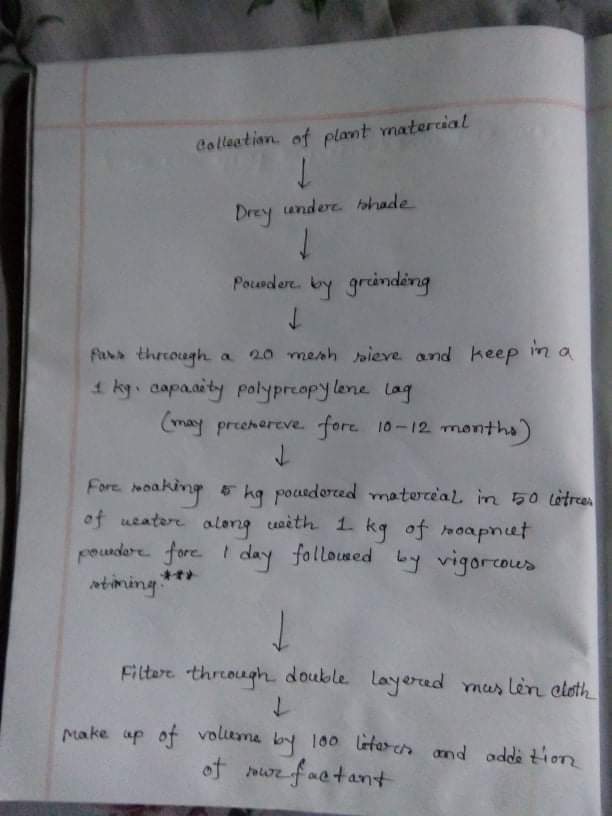 Collection of plant material
↓
Dry under shade
↓
Powder by grinding
↓
Pass through a 20 mesh sieve and keep in a
1 kg. capacity polypropylene lag
(may preserve for 10-12 months)
↓
For soaking 5 kg powdered material in 50 litres
of water along with 1 kg of soapnut
powder for 1 day followed by vigorous
stiming.***
↓
Filter through double layered muslin cloth
↓
Make up of volume by 100 liters and addition
of surfactant